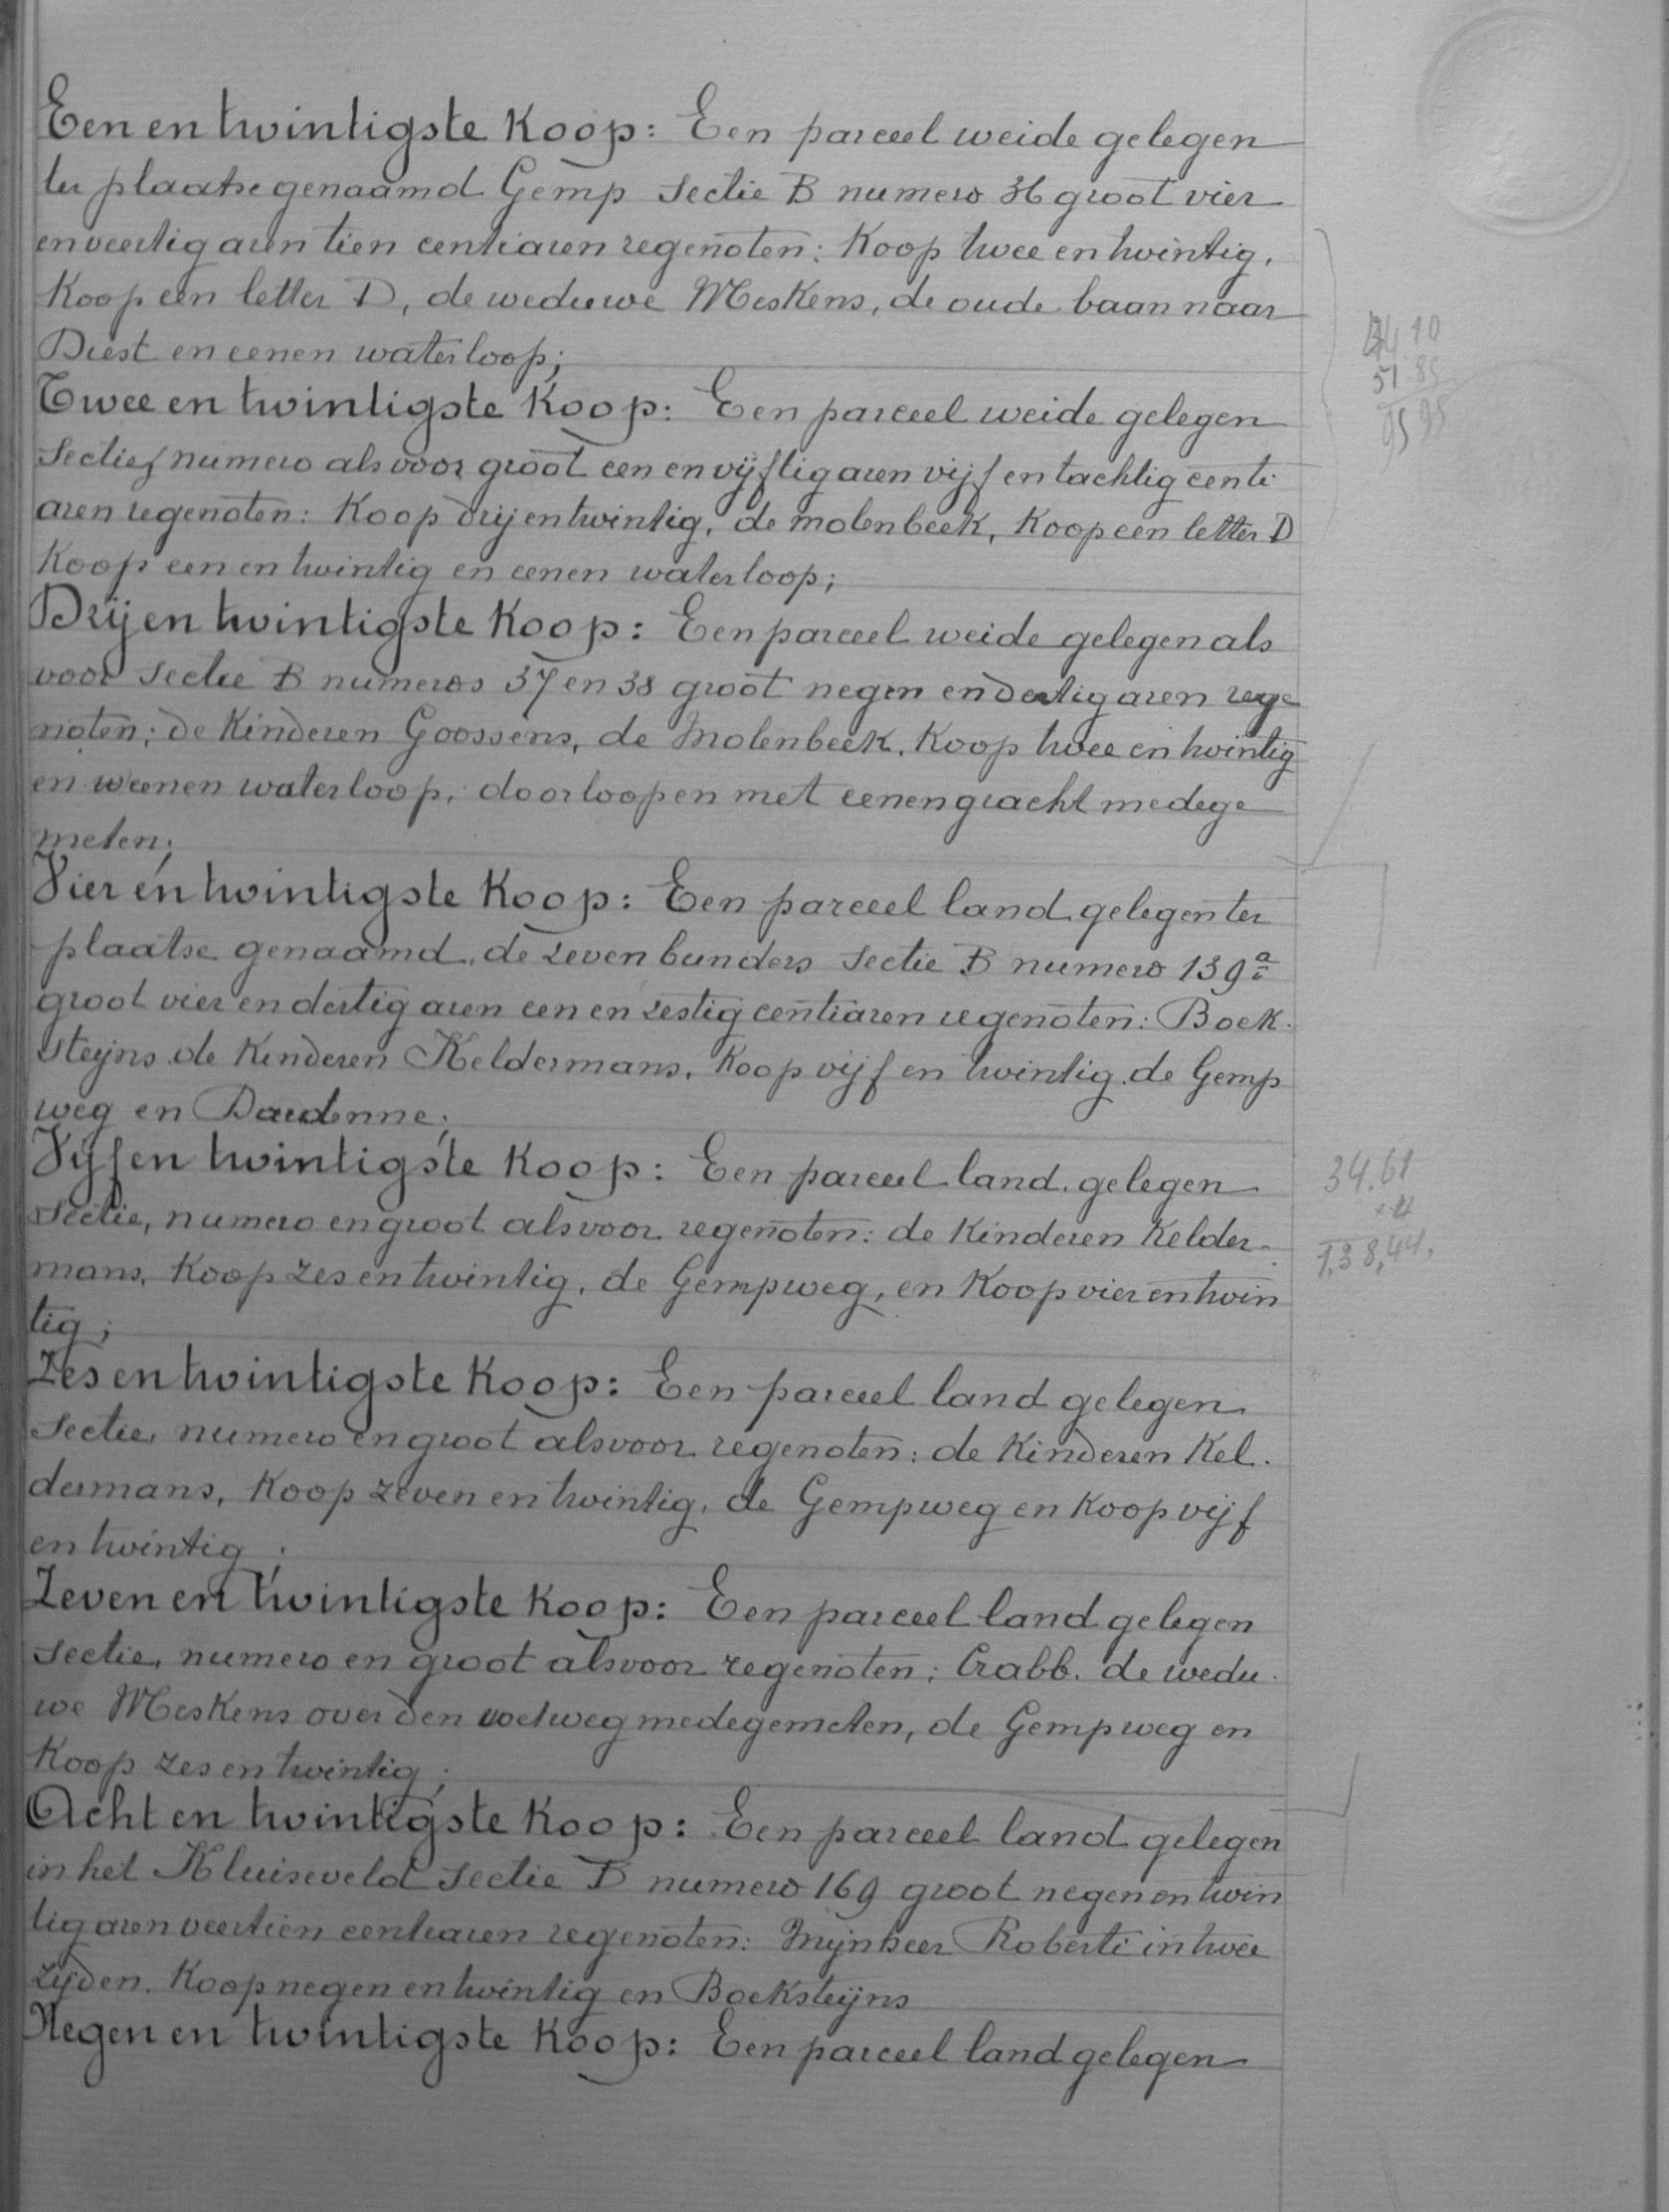 Een en twintigste Koop: Een parceel weide gelegen
ter plaatse genaamd Gemp sectie B numero 36 groot vier
en veertig aren tien centiaren regenoten: Koop twee en twintig,
Koop een letter D, de weduwe Meskens, de oude baan naar
Diest en eenen waterloop;
44 10
51.85
95 95
Twee en twintigste Koop: Een parceel weide gelegen
sectie, numero als voor groot een en vijftig aren vijf en tachtig centi
aren regenoten: Koop drij en twintig, de molenbeek, Koop een letter D
Koop een en twintig en eenen waterloop;
Drij en twintigste Koop: Een parceel weide gelegen als
voor sectie B numeros 37 en 38 groot negen en dertig aren rege
noten: de Kinderen Goossens, de Molenbeek, Koop twee en twintig
en eenen waterloop, doorloopen met eenen gracht medege
meten;
Vier en twintigste Koop: Een parceel land gelegen ter
plaatse genaamd de zeven bunders sectie B numero 139a
groot vier en dertig aren een en zestig centiaren regenoten: Boek.
steijns de Kinderen Keldermans, Koop vijf en twintig de Gemp
weg en Daudenne;
Vijf en twintigste Koop: Een parceel land gelegen
sectie, numero en groot als voor regenoten: de Kinderen Kelder-
mans, Koop zes en twintig, de Gempweg, en Koop vier en twin
tig;
34.61
x 4
1,38,44.
Zes en twintigste Koop: Een parceel land gelegen
sectie, numero en groot als voor regenoten: de Kinderen Kel.
dermans, Koop zeven en twintig, de Gempweg en Koop vijf
en twintig;
Zeven en twintigste Koop: Een parceel land gelegen
sectie, numero en groot als voor regenoten: Crabb. de wedu.
we Meskens over den voetweg medegemeten, de Gempweg en
Koop zes en twintig;
Acht en twintigste Koop: Een parceel land gelegen
in het Kluiseveld sectie B numero 169 groot negen en twin
tig aren veertien centiaren regenoten: Mijnheer Roberti in twee
zijden. Koop negen en twintig en Boeksteijns
Negen en twintigste Koop: Een parceel land gelegen